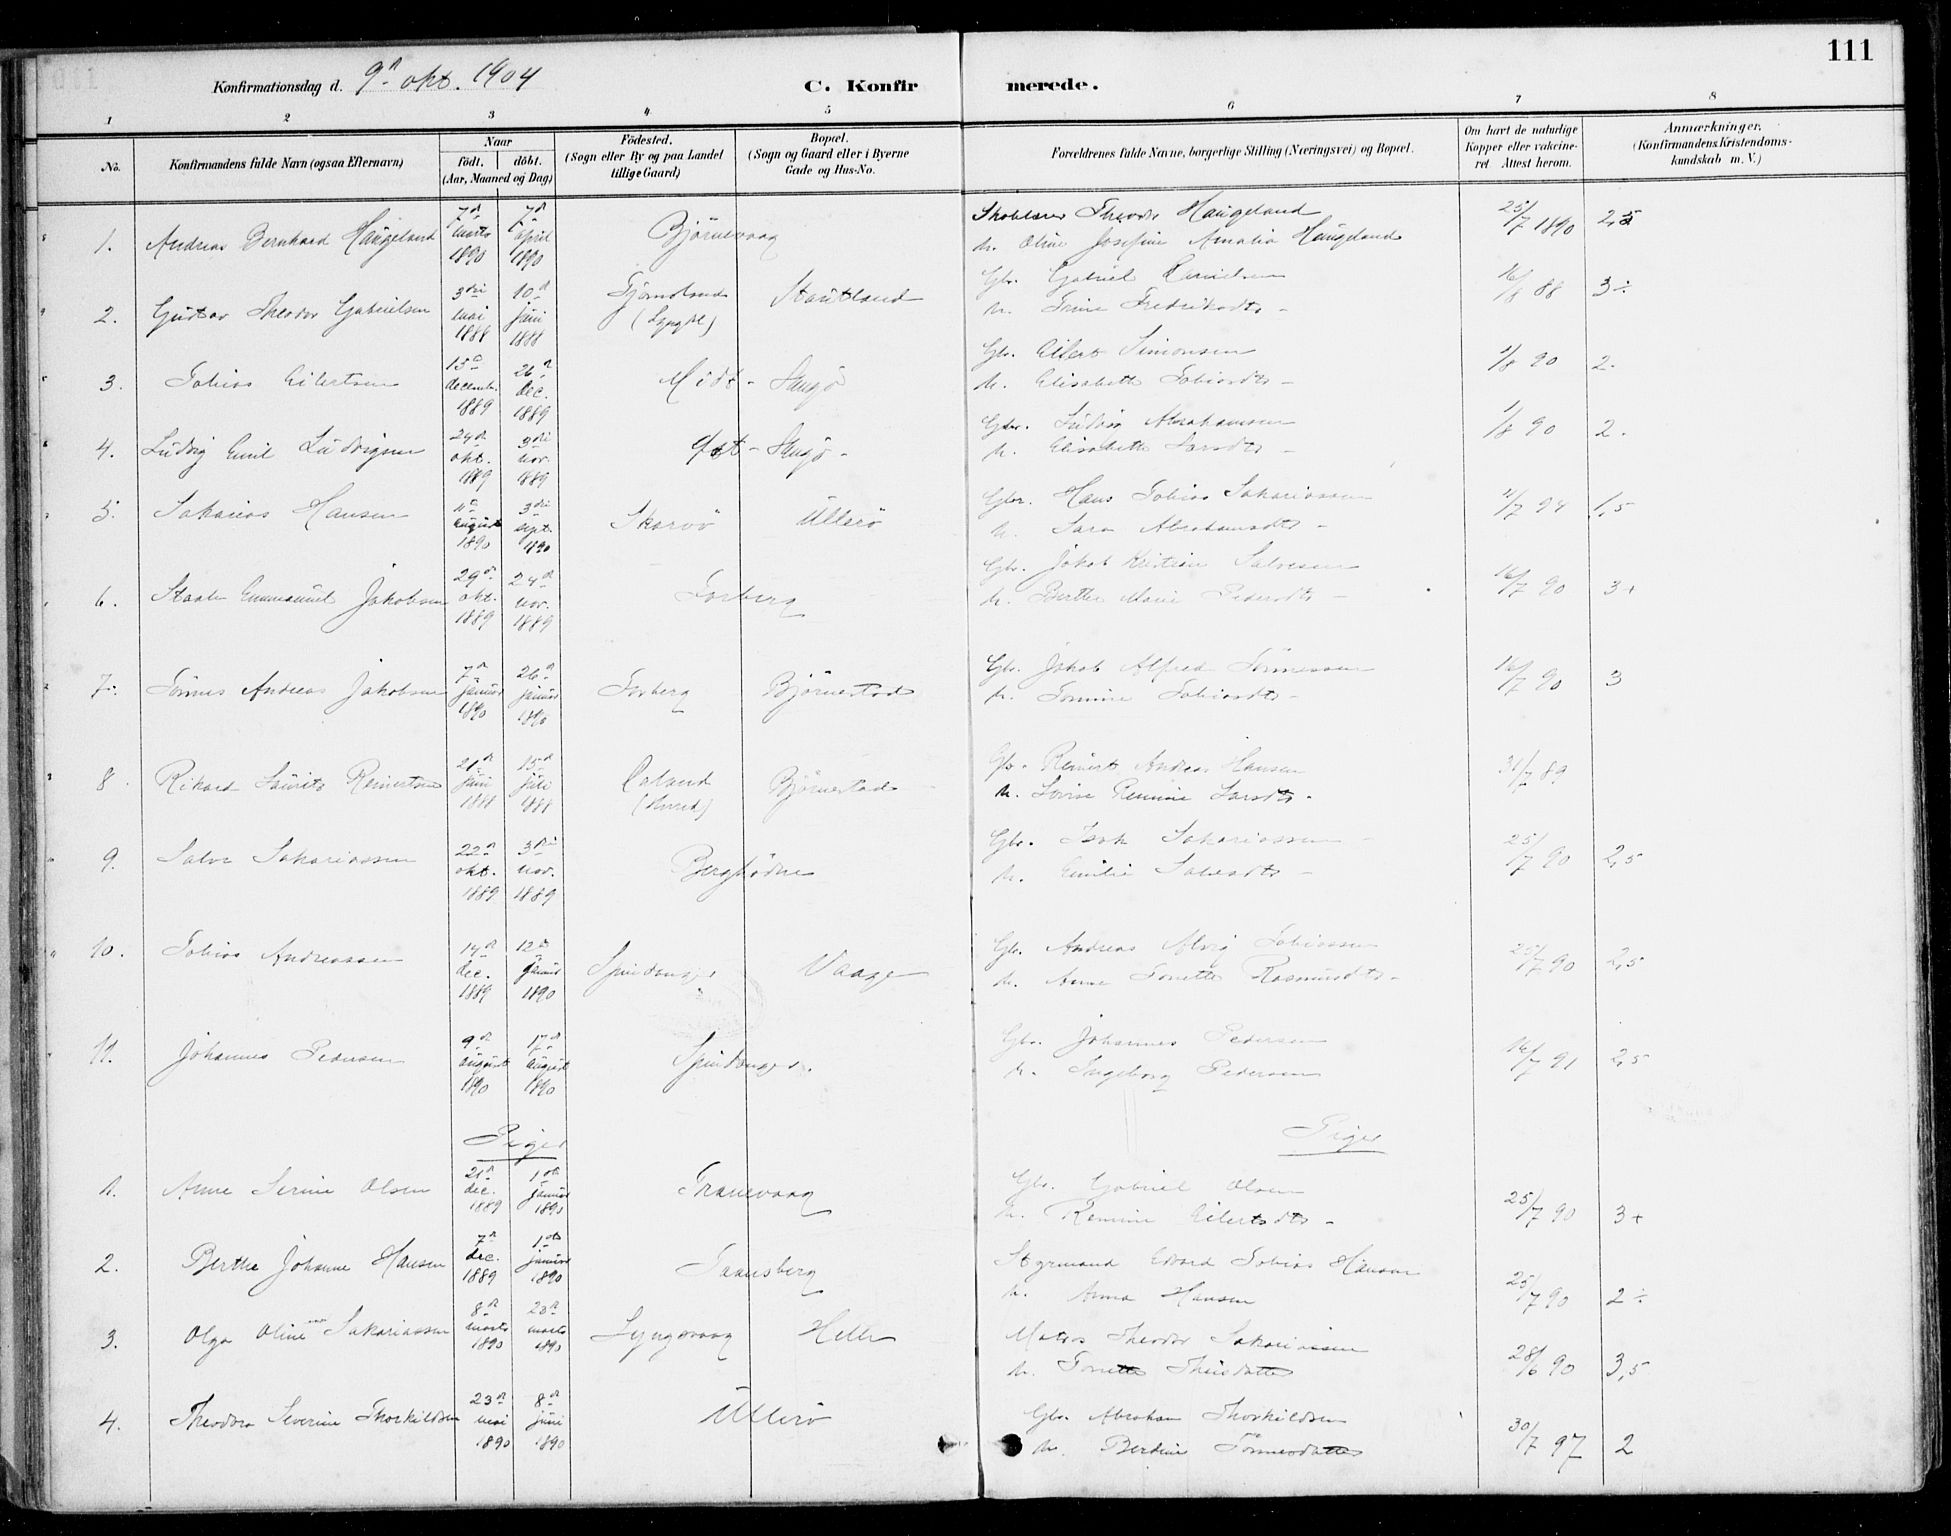 111
Konfirmationsdag d. 9d okt. 1904
C. Konfirmerede.
1 2 3 4. 5 6 7 8
No.
Konfirmandens fulde Navn (ogsaa Efternavn)
Naar
födt, döbt.
(Aar, Maaned og Dag)
Födested.
(Sogn eller By og paa Landet
tillige Gaard)
Bopæl.
(Sogn og Gaard eller i Byerne
Gade og Hus-No.
Forældrenes fulde Navne, borgerlige Stilling (Næringsvei) og Bopæl.
Om havt de naturlige
Kopper eller vakcine-
ret. Attest herom.
Anmærkninger.
(Konfirmandens Kristendoms-
kundskab m. V.)
1. Andreas Bernhard Haugeland 7d marts 1890 7d april 1890 Björnevaag Theodor Haugeland 25/7 1890 2,5
M. Oline Josefine Amalia Haugeland
2. Gustav Theodor Gabrielsen 3die mai 1888 10d juni 1888 Stautland Gbr. Gabriel 16/8 88 3÷
M. Trine Fredriksdtr -
3. Tobias Eilertsen 15d decemb. 1889 26d dec. 1889 Midt - Skagö Gbr. Eilert Simonsen 1/8 90 2.
M. Elisabeth Tobiasdtr -
4. Ludvig Emil Ludvigsen 24d okt. 1889 3die nov. 1889 Öst - Skagö - Gbr. Ludvig Abrahamsen 1/8 90 2.
M. Elisabeth Larsdtr -
5. Sakarias Hansen 11d august 1890 3die sept. 1890 Skarvö Ullerö Gbr. Hans Tobias Sakariassen 94 1,5
M. Sara Abrahamsdtr -
6. Emmanuel Jakobsen 29d okt. 1889 24d nov. 1889 Forberg Gbr. Jakob Kristian Salvesen 16/7 90 3+
M. Berthe Marie Pedersdtr -
7. Tönnes Andreas Jakobsen 7d januar 1890 26d januar 1890 Forberg Björnestad Gbr. Jakob Alfred Tönnessen 16/7 90 3
M. Tomine Tobiasdtr -
8. Rikard Laurits Reinertsen 21d juni 1888 15d juli 1888 Björnestad Gbr. Reinert Andreas Hansen 31/7 89
M. Lovise Larsdtr -
9. Salve Sakariassen 22d okt. 1889 3die nov. 1889 Gbr. Isak Sakariassen 25/7 90 2,5
M. Emilie Salvesdtr -
10. Tobias Andreassen 14d dec. 1889 12te januar 1890 Spindsnger Vaage Gbr. Andreas Alvig Tobiassen 25/7 90 2,5
M. Anne Tonette Rasmusdtr -
11. Johannes Pedersen 9d august 1890 17d august 1890 Gbr. Johannes Pedersen 16/7 91 2,5
M. Ingeborg Pedersen
Piger
Piger
1. Anne Serine Olsen 21d dec. 1889 1ste januar 1890 Tranevaag Gbr. Gabriel Olsen 25/7 90 3+
M. Remine Eilertsdtr -
2. Berthe Johanne Hansen 7d dec. 1889 1ste januar 1890 Taansberg Styrmand Edvard Tobias Hansen 25/7 90 2÷
M. Anna Hansen
3. Olga Oline Sakariassen 8d marts 1890 23d marts 1890 Lyngsvaag Helle Matros Theodor Sakariassen 28/6 90 3,5
M. Tonette Theisdatter
4. Theodora Severine Thorkildsen 23d mai 1890 8d juni 1890 Ullerö Gbr. Abraham Thorkildsen 30/7 97 2
M. Bertine Tönnesdatter